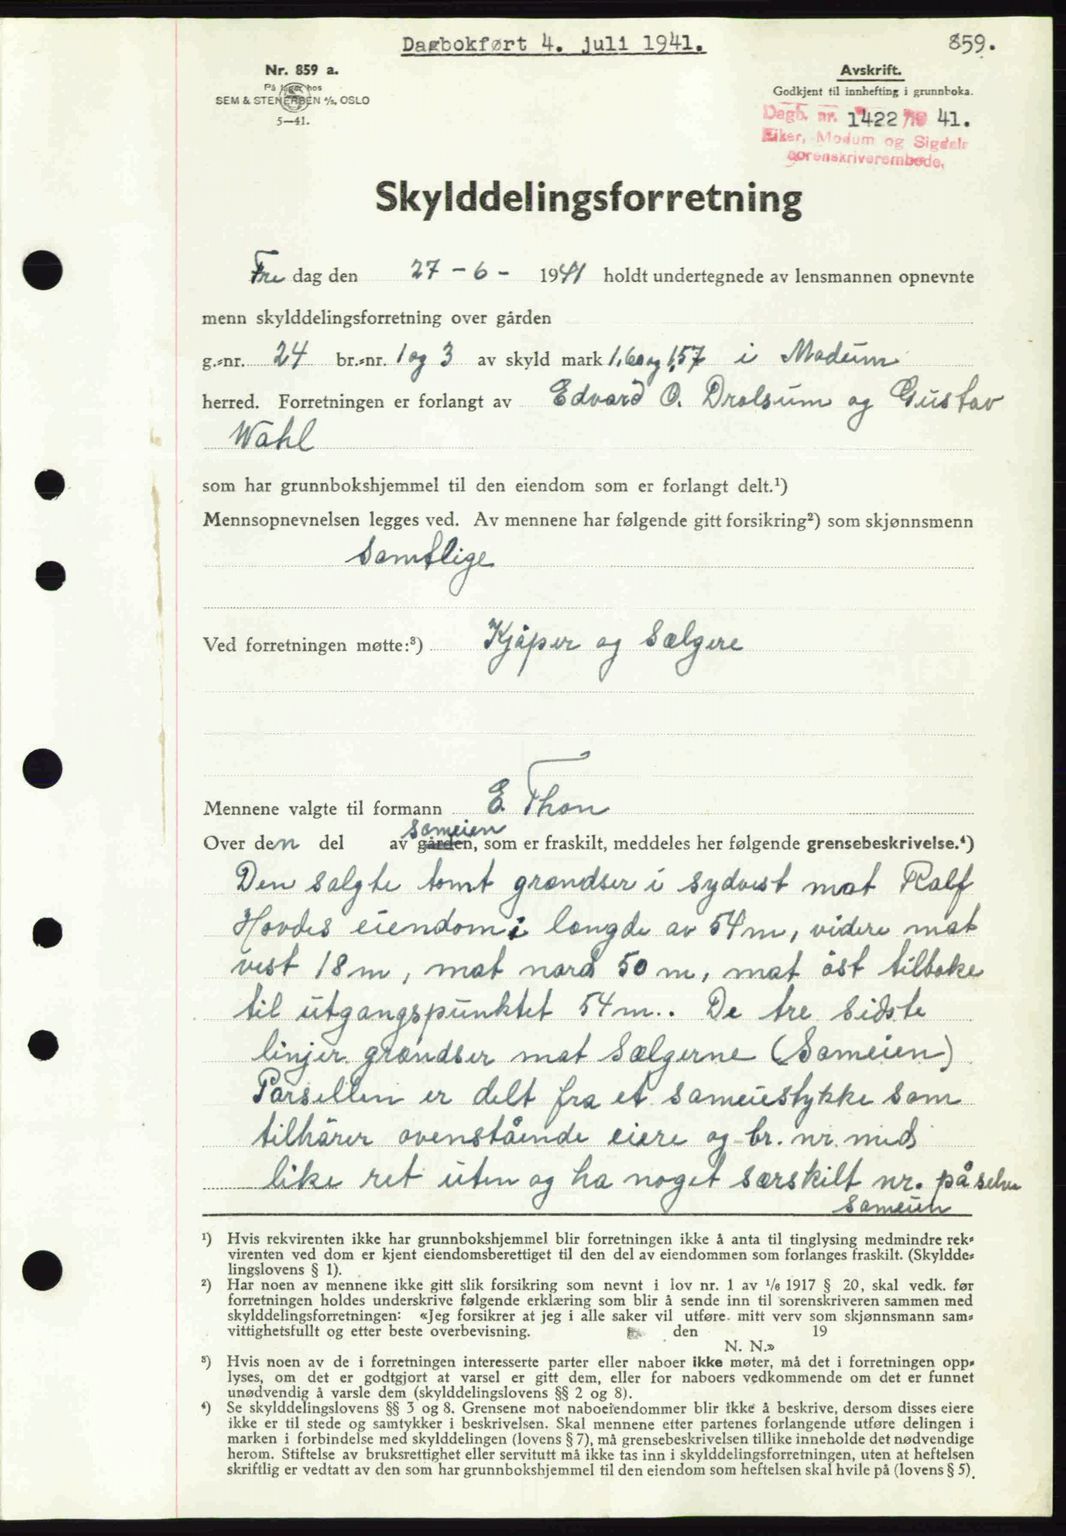 Dagbokført 4. juli 1941.
859.
Nr. 859 a.
På lager hos
SEM & STENERSEN A/S, OSLO
5—41.
Avskrift.
Godkjent til innhefting i grunnboka.
Dagb. nr. 1422/19 41.
Eiker, Modum og Sigdals
sorenskriverembede.
Skylddelingsforretning
Fre dag den 27 - 6 - 1941 holdt undertegnede av lensmannen opnevnte
menn skylddelingsforretning over gården
g.-nr. 24 br.-nr. 1 og 3 av skyld mark 1,60 og 1,57 i Modum
herred. Forretningen er forlangt av Edvard O. Drolsum og Gustav
Wahl
som har grunnbokshjemmel til den eiendom som er forlangt delt.¹)
Mennsopnevnelsen legges ved. Av mennene har følgende gitt forsikring²) som skjønnsmenn
Samtlige
Ved forretningen møtte:³) Kjøper og Sælgere
Mennene valgte til formann E. Thon
sameien
Over den del av gården, som er fraskilt, meddeles her følgende grensebeskrivelse.⁴)
Den solgte tomt grændser i sydvest mot Ralf
Hovdes eiendom i længde av 54 m, videre mot
vest 18 m, mot nord 50 m, mot öst tilbake
til utgangspunktet 54 m.. De tre sidste
linjer grændser mot Sælgerne (Sameien)
Parsellen er delt fra et sameiestykke som
tilhører ovenstående eiere og br. nr. med
like ret uten og ha noget særskilt nr. på selve
sameien
¹) Hvis rekvirenten ikke har grunnbokshjemmel blir forretningen ikke å anta til tinglysing medmindre rek-
virenten ved dom er kjent eiendomsberettiget til den del av eiendommen som forlanges fraskilt. (Skyldde-
lingslovens § 1).
²) Har noen av mennene ikke gitt slik forsikring som nevnt i lov nr. 1 av ¹/₆ 1917 § 20, skal vedk. før
forretningen holdes underskrive følgende erklæring som blir å sende inn til sorenskriveren sammen med
skylddelingsforretningen: «Jeg forsikrer at jeg i alle saker vil utføre mitt verv som skjønnsmann sam-
vittighetsfullt og etter beste overbevisning. den 19
N. N.»
³) Hvis noen av de i forretningen interesserte parter eller naboer ikke møter, må det i forretningen opp-
lyses, om det er godtgjort at varsel er gitt dem, eller for naboers vedkommende om det er funnet
unødvendig å varsle dem (skylddelingslovens §§ 2 og 8).
⁴) Se skylddelingslovens §§ 3 og 8. Grensene mot naboeiendommer blir ikke å beskrive, dersom disses eiere
ikke er til stede og samtykker i beskrivelsen. Skal mennene etter partenes forlangende utføre delingen i
marken i forbindelse med skylddelingen (lovens § 7), må grensebeskrivelsen tillike inneholde det nødvendige
herom. Stiftelse av bruksrettighet eller servitutt må ikke tas inn i skylddelingsforretningen, uten at heftelsen
skriftlig er vedtatt av den som har grunnbokshjemmel til den eiendom som heftelsen skal hvile på (lovens § 5).